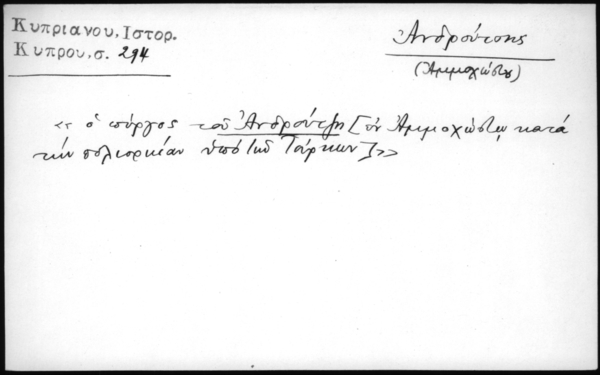 Κυπριανου, Ιστορ.
Κυπρου, σ. 294
Ἀνδρούτσης
(Ἀμμοχώστου)
«ὁ πύργος τοῦ Ἀνδρούτζη [ἐν Ἀμμοχώστῳ κατὰ
τὴν πολιορκίαν ὑπὸ τῶν Τούρκων]»